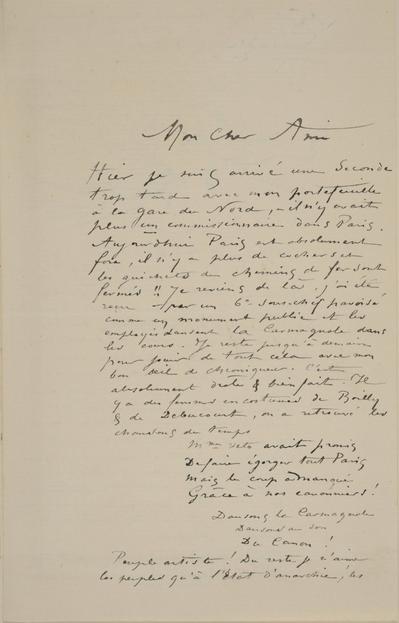 Mon cher Ami
Hier je suis arrivé une seconde
trop tard avec mon portefeuille
à la gare du Nord, il n'y avait
plus un commissionnaire dans Paris.
Aujourdhui Paris est absolument
fou, il n'y a plus de cochers et
les guichets de chemins de fer sont
fermés !! Je reviens de là. j'ai été
reçu par un 6e sous chef pavoisé
comme un monument public et les
employés dansent la Carmagnole dans
les cours. Je reste jusqu'à demain
pour jouir de tout cela avec mon
bon œil de chroniqueur. C'est
absolument drôle & bien fait. Il
y a des femmes en costumes de Boilly
& de Debucourt, on a retrouvé les
chansons du temps
Mme Veto avait promis
De faire égorger tout Paris
Mais le coup a manqué
Grâce à nos canonniers !
Dansons la Carmagnole
Dansons au son
Du Canon !
Peuple artiste ! Du reste je n'aime
les peuples qu'à l'Etat d'anarchie, les